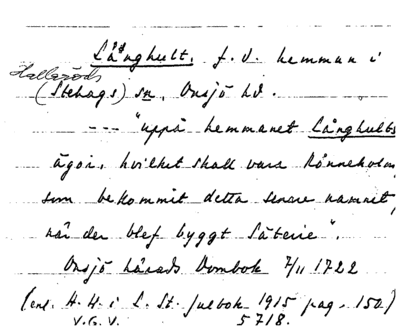 Långhult, f. d. hemman i
Hallaröds
(Stehags) sn, Onsjö hd.
--- "uppå hemmanet Långhults
ägor, hvilket skall vara Rönneholm,
som bekommit detta senare namnet,
när der blef byggt Säterie".
Onsjö härads Dombok 7/11 1722
(enl. H. H. i L. St. julbok 1915 pag. 150.)
V.G.V. 5718.